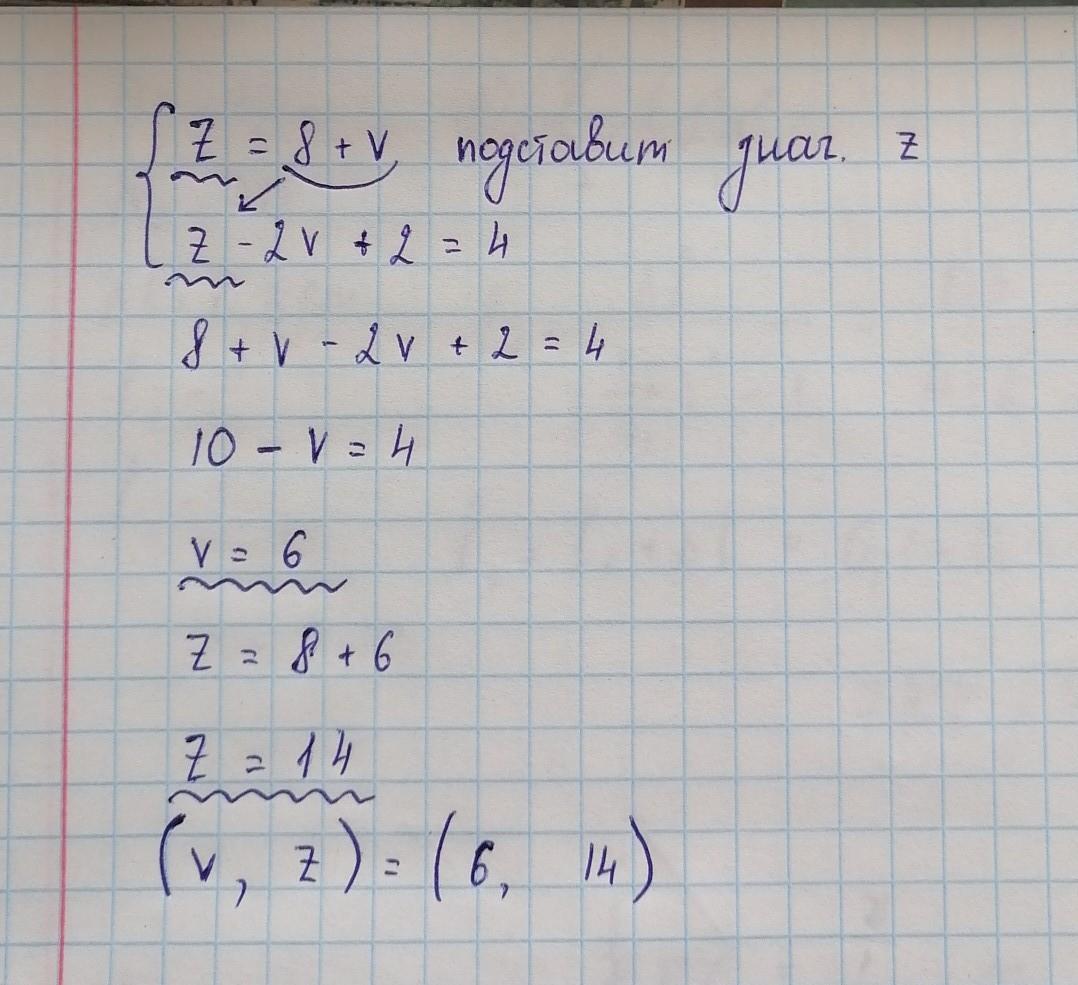 z = 8 + v подставит знач. z
z - 2v + 2 = 4
8 + v - 2v + 2 = 4
10 - v = 4
v = 6
z = 8 + 6
z = 14
(v, z) = (6, 14)